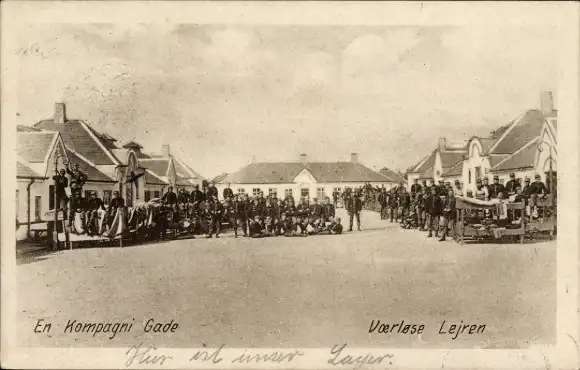 En Kompagni Gade
Værløse Lejren
Hier ist unser Lager.